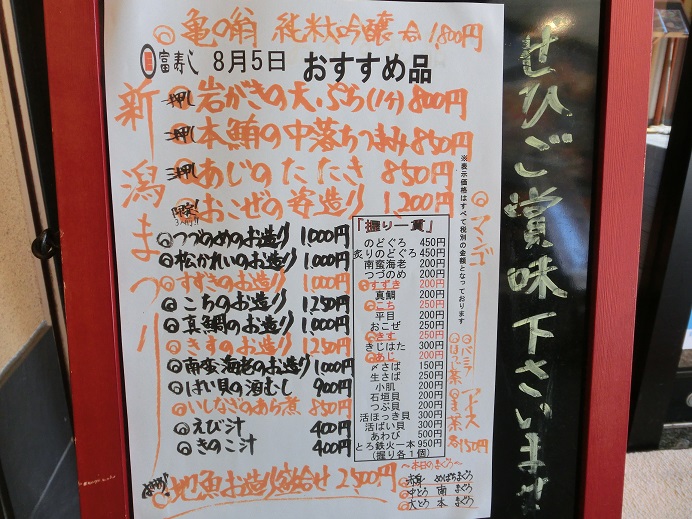 亀の翁 純米大吟醸 合 1,800円
富寿し 8月5日 おすすめ品
新潟まつり
一押し 岩がきの大ぶち(1ヶ) 800円
二押し 本鮪の中落ちつまみ 850円
三押し あじのたたき 850円
限定! おこぜの姿造り 1,200円
※表示価格はすべて税別の金額となっております
つづのめのお造り 1,000円
松かれいのお造り 1,000円
すずきのお造り 1,000円
こちのお造り 1,250円
真鯛のお造り 1,000円
きすのお造り 1,250円
南蛮海老のお造り 1,000円
ばい貝の酒むし 900円
いしなぎのあら煮 850円
えび汁 400円
きのこ汁 400円
地魚お造り盛合せ 2,500円
「握り一貫」
のどぐろ 450円
炙りのどぐろ 450円
南蛮海老 200円
つづのめ 200円
すずき 200円
真鯛 200円
こち 250円
平目 200円
おこぜ 250円
きす 250円
きじはた 300円
あじ 200円
〆さば 150円
生さば 250円
小肌 200円
石垣貝 200円
つぶ貝 200円
活ほっき貝 300円
活ばい貝 300円
あわび 500円
とろ鉄火一本 950円
(握り各1個)
マンゴー
バニラ
ほうじ茶
アイス
各150円
〜本日のまぐろ〜
赤身 めばちまぐろ
中とろ 南まぐろ
大とろ 本まぐろ
ぜひご賞味下さいませ